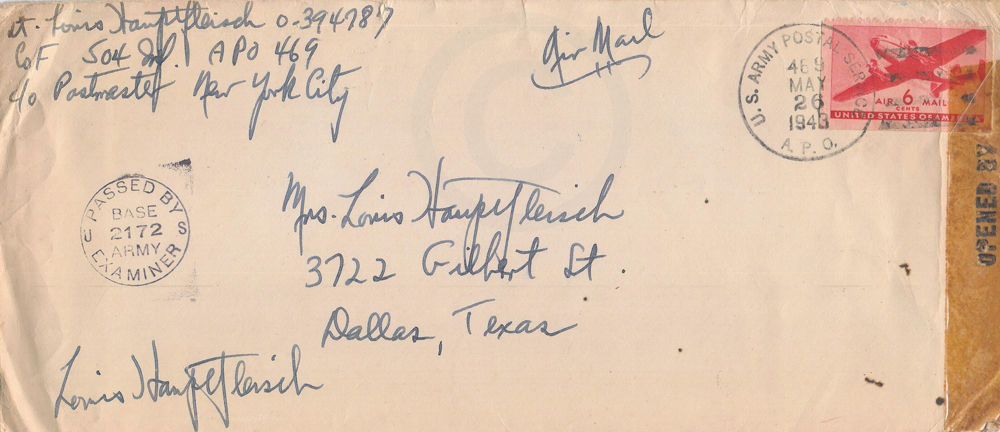 Lt. Louis Hauptfleisch O-394787
Co F 504 Inf. APO 469
c/o Postmaster New York City
Air Mail
U.S. ARMY POSTAL SERVICE
469
MAY
26
1943
A.P.O.
AIR 6 MAIL
CENTS
UNITED STATES OF AMERICA
OPENED BY
PASSED BY
BASE
2172
ARMY
EXAMINER
U S
Mrs. Louis Hauptfleisch
3722 Gilbert St.
Dallas, Texas
Louis Hauptfleisch